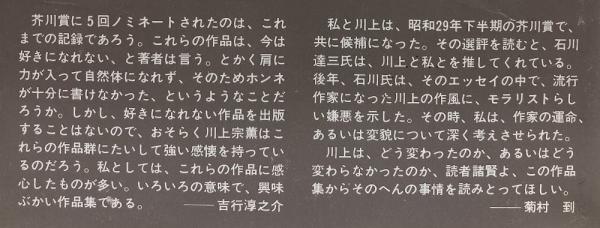 芥川賞に5回ノミネートされたのは、これ
までの記録であろう。これらの作品は、今は
好きになれない、と著者は言う。とかく肩に
力が入って自然体になれず、そのためホンネ
が十分に書けなかった、というようなことだ
ろうか。しかし、好きになれない作品を出版
することはないので、おそらく川上宗薫はこ
れらの作品群にたいして強い感懐を持ってい
るのだろう。私としては、これらの作品に感
心したものが多い。いろいろの意味で、興味
ぶかい作品集である。 ——吉行淳之介
私と川上は、昭和29年下半期の芥川賞で、
共に候補になった。その選評を読むと、石川
達三氏は、川上と私とを推してくれている。
後年、石川氏は、そのエッセイの中で、流行
作家になった川上の作風に、モラリストらし
い嫌悪を示した。その時、私は、作家の運命、
あるいは変貌について深く考えさせられた。
川上は、どう変わったのか、あるいはどう
変わらなかったのか、読者諸賢よ、この作品
集からそのへんの事情を読みとってほしい。
——菊村 到